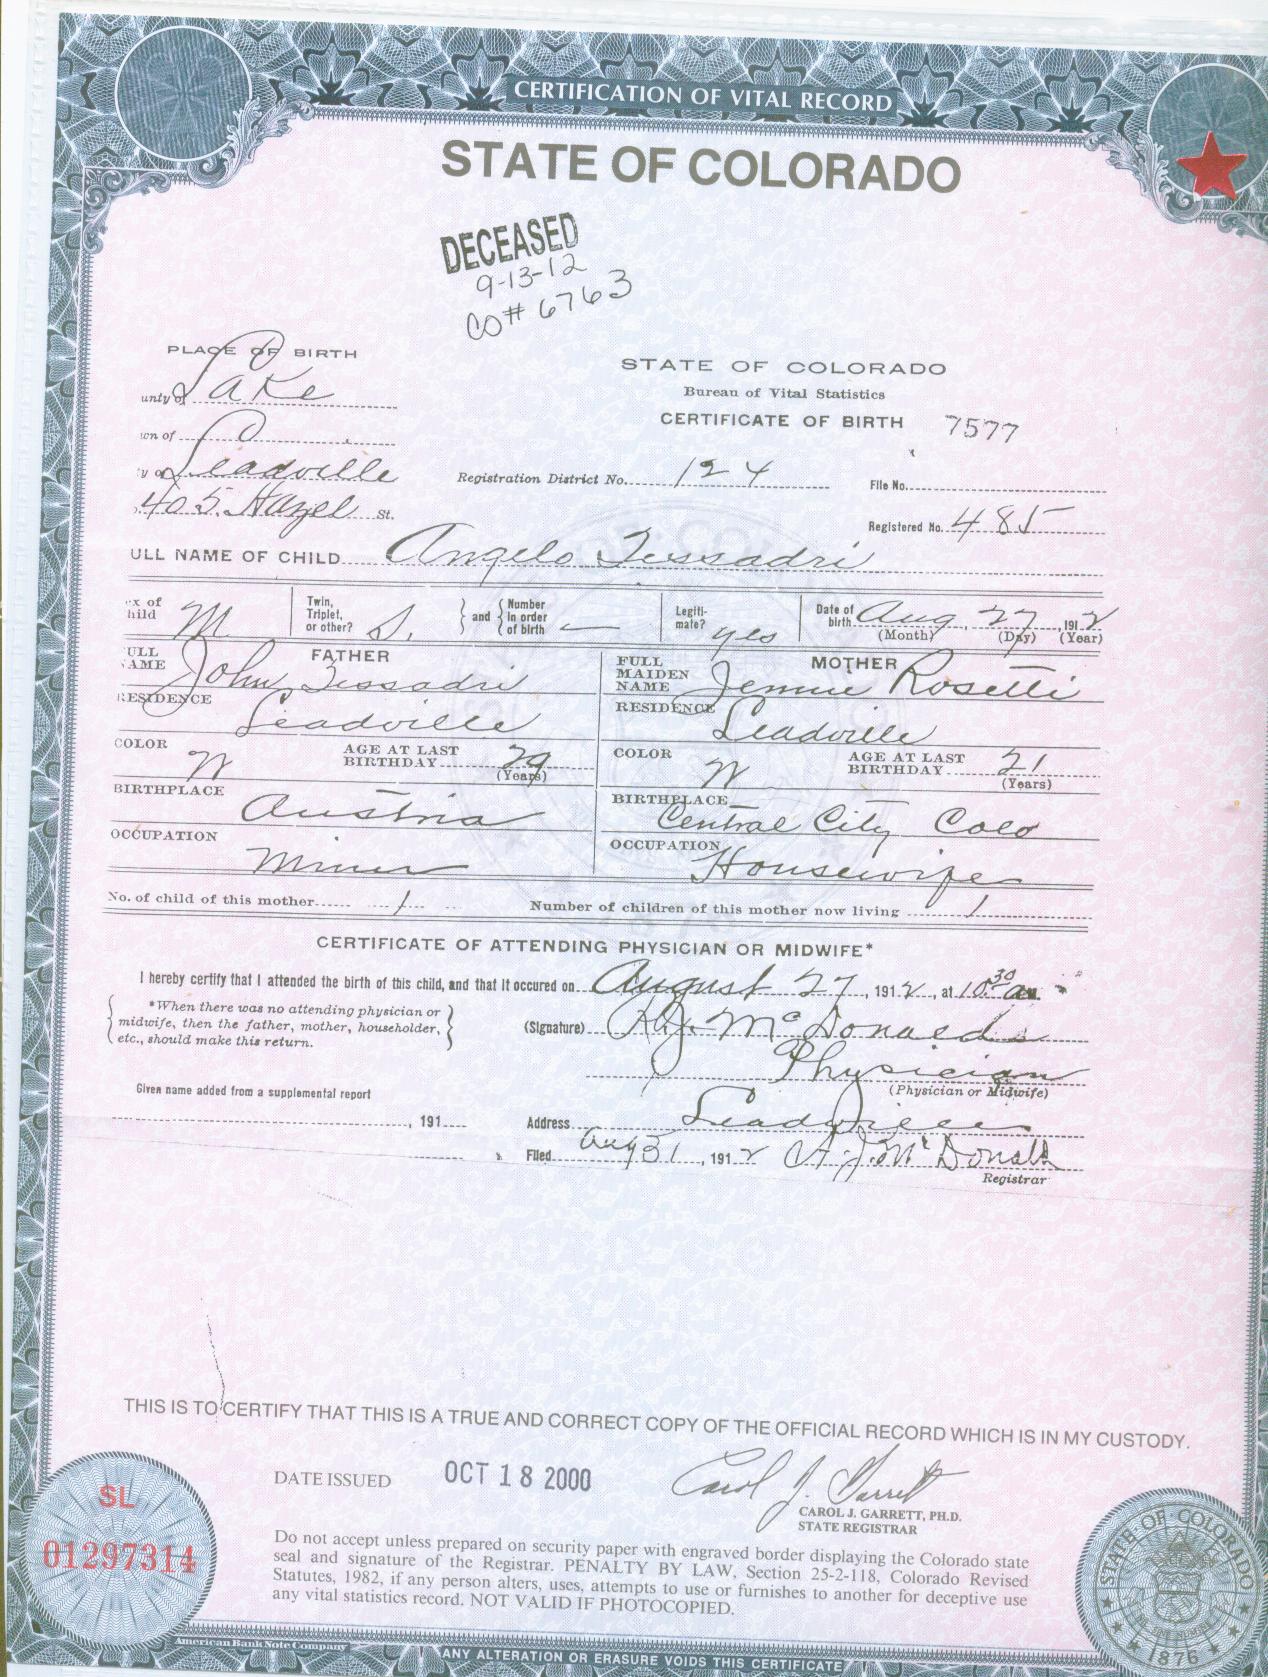 CERTIFICATION OF VITAL RECORD
STATE OF COLORADO
DECEASED
9-13-12
CO# 6763
PLACE OF BIRTH
unty of Lake
wn of
ty of Leadville
405 Hazel St.
STATE OF COLORADO
Bureau of Vital Statistics
CERTIFICATE OF BIRTH 7577
Registration District No. 124
File No.
Registered No. 485
ULL NAME OF CHILD Angelo Tessadri
ex of hild M
Twin, Triplet, or other? S. and Number in order of birth —
Legiti- mate? yes
Date of birth Aug 27, 1912
(Month) (Day) (Year)
FATHER
ULL NAME John Tessadri
RESIDENCE Leadville
COLOR W AGE AT LAST BIRTHDAY 29 (Years)
BIRTHPLACE Austria
OCCUPATION Miner
MOTHER
FULL MAIDEN NAME Jennie Rosetti
RESIDENCE Leadville
COLOR W AGE AT LAST BIRTHDAY 21 (Years)
BIRTHPLACE Central City Colo
OCCUPATION Housewife
No. of child of this mother 1 Number of children of this mother now living 1
CERTIFICATE OF ATTENDING PHYSICIAN OR MIDWIFE*
I hereby certify that I attended the birth of this child, and that it occured on August 27, 1912, at 10:30 am.
*When there was no attending physician or
midwife, then the father, mother, householder,
etc., should make this return.
(Signature) McDonald
Physician
(Physician or Midwife)
Given name added from a supplemental report
, 191
Address Leadville
Filed Aug 31, 1912 J. McDonald
Registrar
THIS IS TO CERTIFY THAT THIS IS A TRUE AND CORRECT COPY OF THE OFFICIAL RECORD WHICH IS IN MY CUSTODY.
DATE ISSUED OCT 18 2000
Carol J. Garrett
CAROL J. GARRETT, PH.D.
STATE REGISTRAR
SL
01297314
Do not accept unless prepared on security paper with engraved border displaying the Colorado state
seal and signature of the Registrar. PENALTY BY LAW, Section 25-2-118, Colorado Revised
Statutes, 1982, if any person alters, uses, attempts to use or furnishes to another for deceptive use
any vital statistics record. NOT VALID IF PHOTOCOPIED.
STATE OF COLORADO
1876
American Bank Note Company
ANY ALTERATION OR ERASURE VOIDS THIS CERTIFICATE